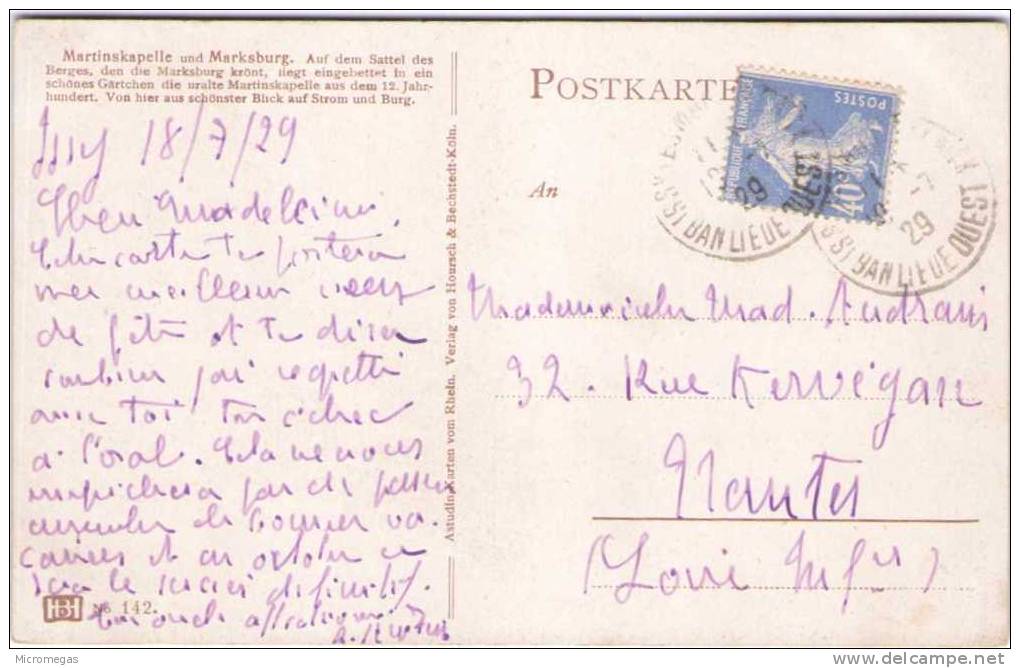 Martinskapelle und Marksburg. Auf dem Sattel des
Berges, den die Marksburg krönt, liegt eingebettet in ein
schönes Gärtchen die uralte Martinskapelle aus dem 12. Jahr-
hundert. Von hier aus schönster Blick auf Strom und Burg.
Issy 18/7/29
Chère Madeleine,
Cette carte te portera
mes meilleurs vœux
de fête et te dira
combien j'ai regretté
avec toi ton échec
à l'oral. Cela ne vous
empêchera pas de passer
ensemble de bonnes va-
cances et en octobre ce
sera le succès définitif.
Ton oncle affectionné
HBH No 142.
Astudin-Karten vom Rhein. Verlag von Hoursch & Bechstedt-Köln.
POSTKARTE
An
REPUBLIQUE FRANÇAISE
POSTES
40c
29
BANLIEUE OUEST
29
BANLIEUE OUEST
Mademoiselle Mad. Andrais
32. Rue Kervégan
Nantes
(Loire Infre)
Micromegas
www.delcampe.net